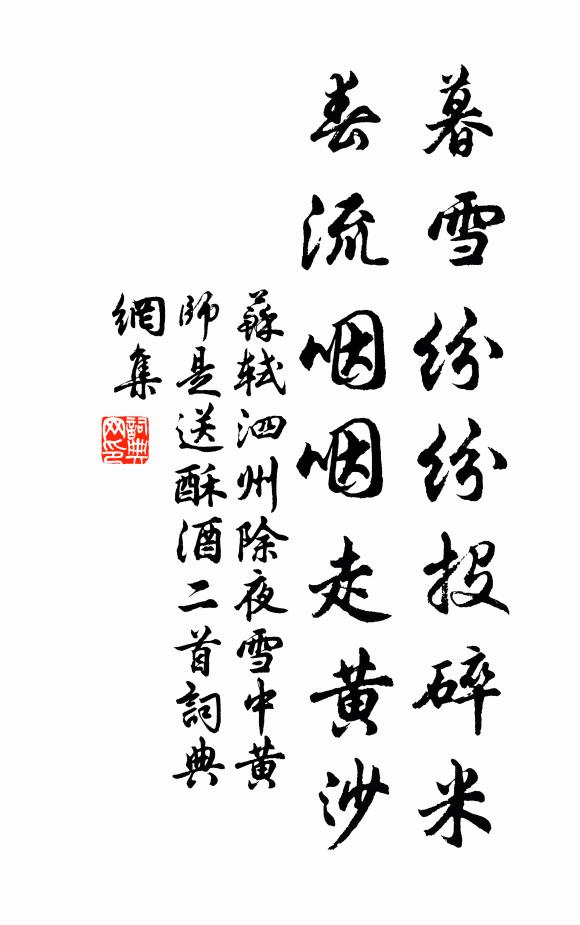 暮雪紛紛投碎米
春流咽咽走黄沙
蘇軾泗州除夜雪中黄
師是送酥酒二首詞典
網集
詞典
网印